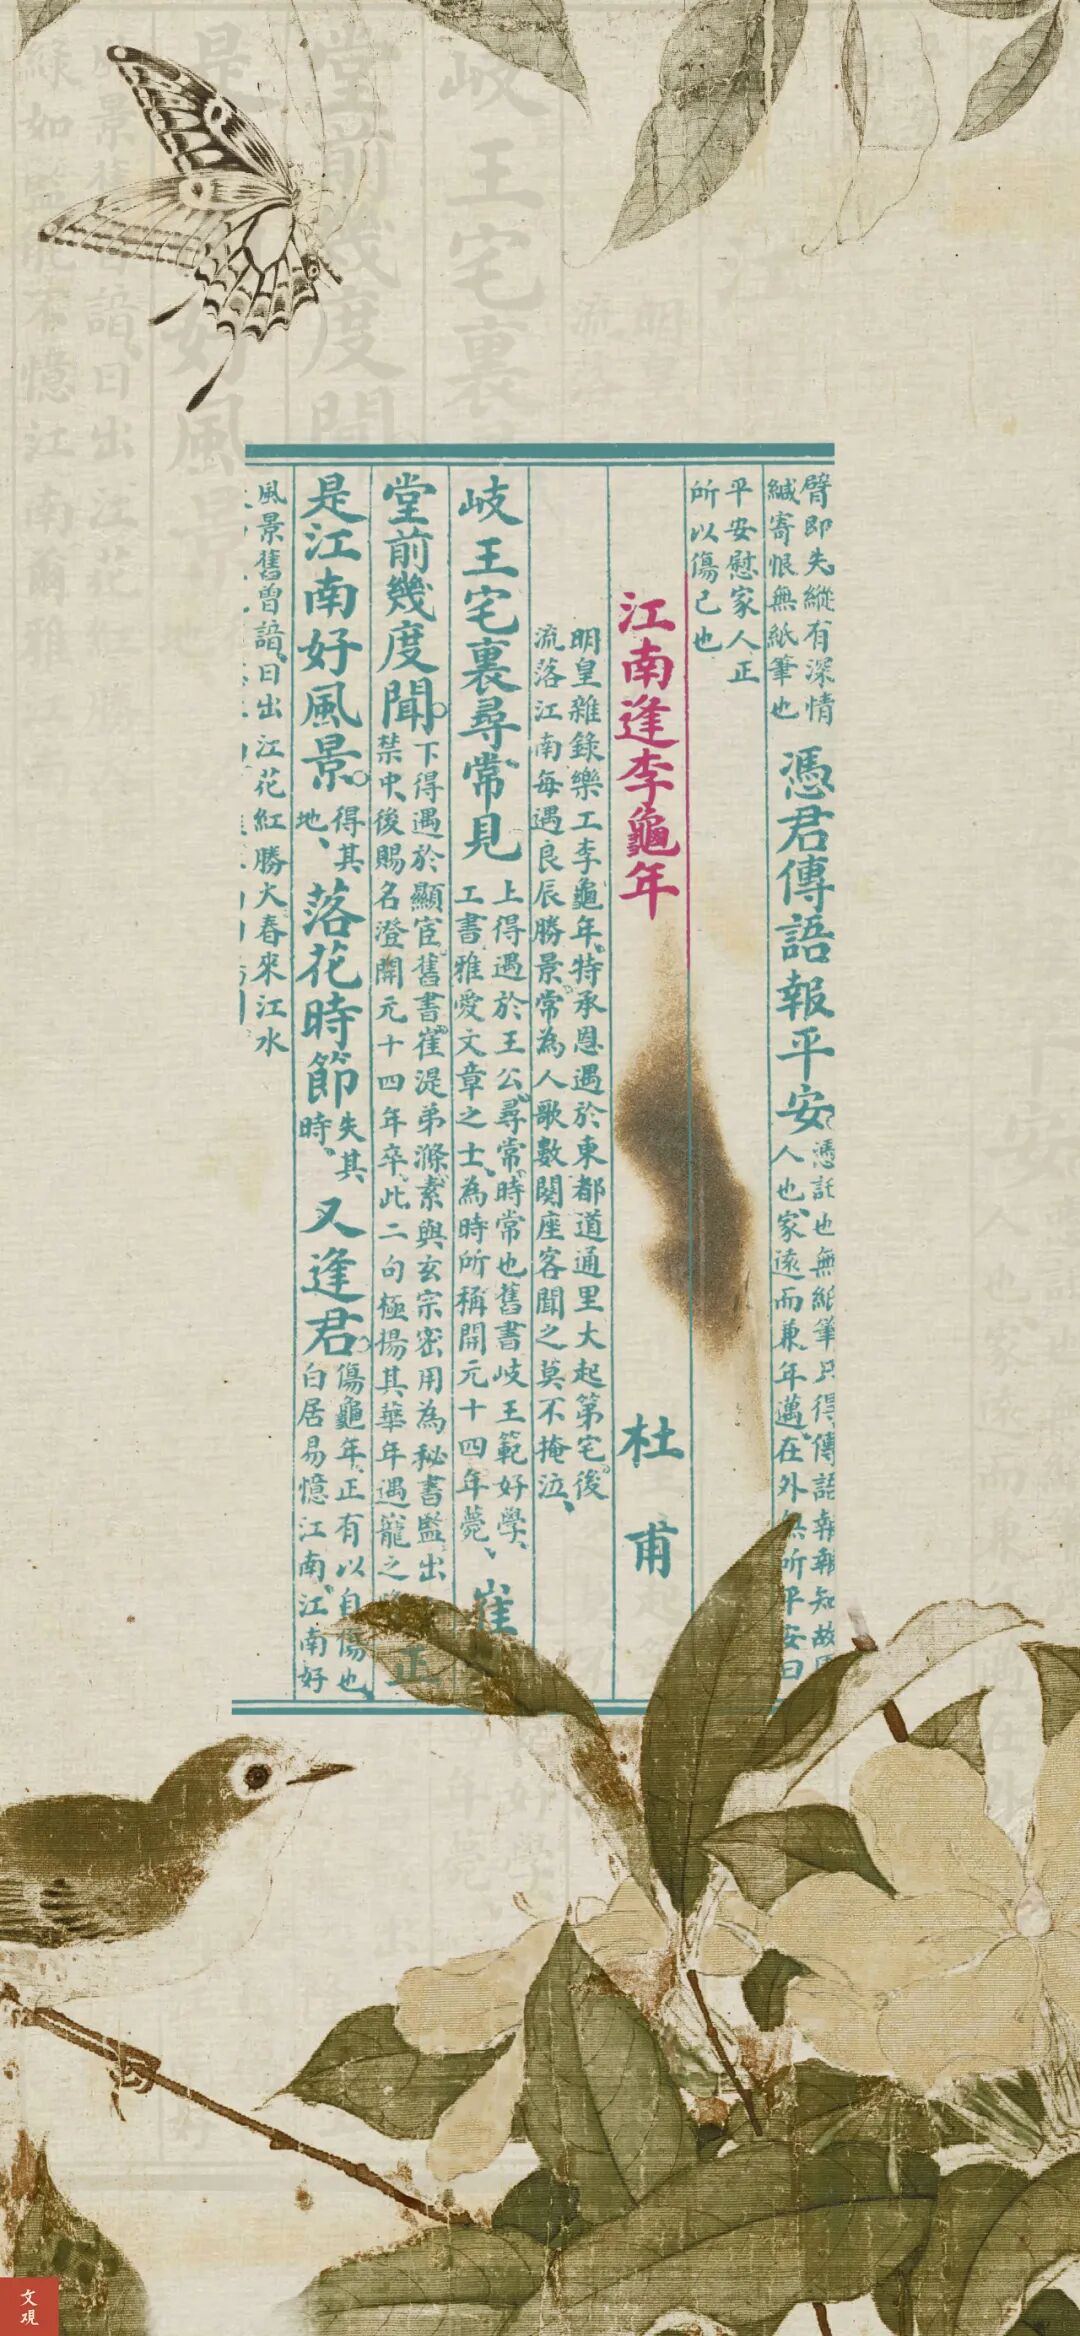 臂即失縱有深情
緘寄恨無紙筆也
憑君傳語報平安。
憑託也無紙筆只得傳語報報知故
人也、家遠而兼年邁、在外無所平安曰
平安慰家人正
所以傷己也
江南逢李龜年
杜甫
明皇雜錄樂工李龜年、特承恩遇於東都道通里大起第宅、後
流落江南每遇良辰勝景、常為人歌數闋座客聞之莫不掩泣、
岐王宅裏尋常見
上得遇於王公、尋常、時常也舊書岐王範好學、
工書雅愛文章之士、為時所稱開元十四年薨、
崔
堂前幾度聞。
下得遇於顯宦、舊書、崔湜弟滌、素與玄宗密用為秘書監、出
禁中、後賜名澄開元十四年卒、此二句極揚其華年遇寵之
正
是江南好風景。
得其
地、
落花時節
失其
時、
又逢君。
傷龜年、正有以自傷也、
白居易憶江南、江南好
風景舊曾諳、日出江花紅勝火春來江水
文观